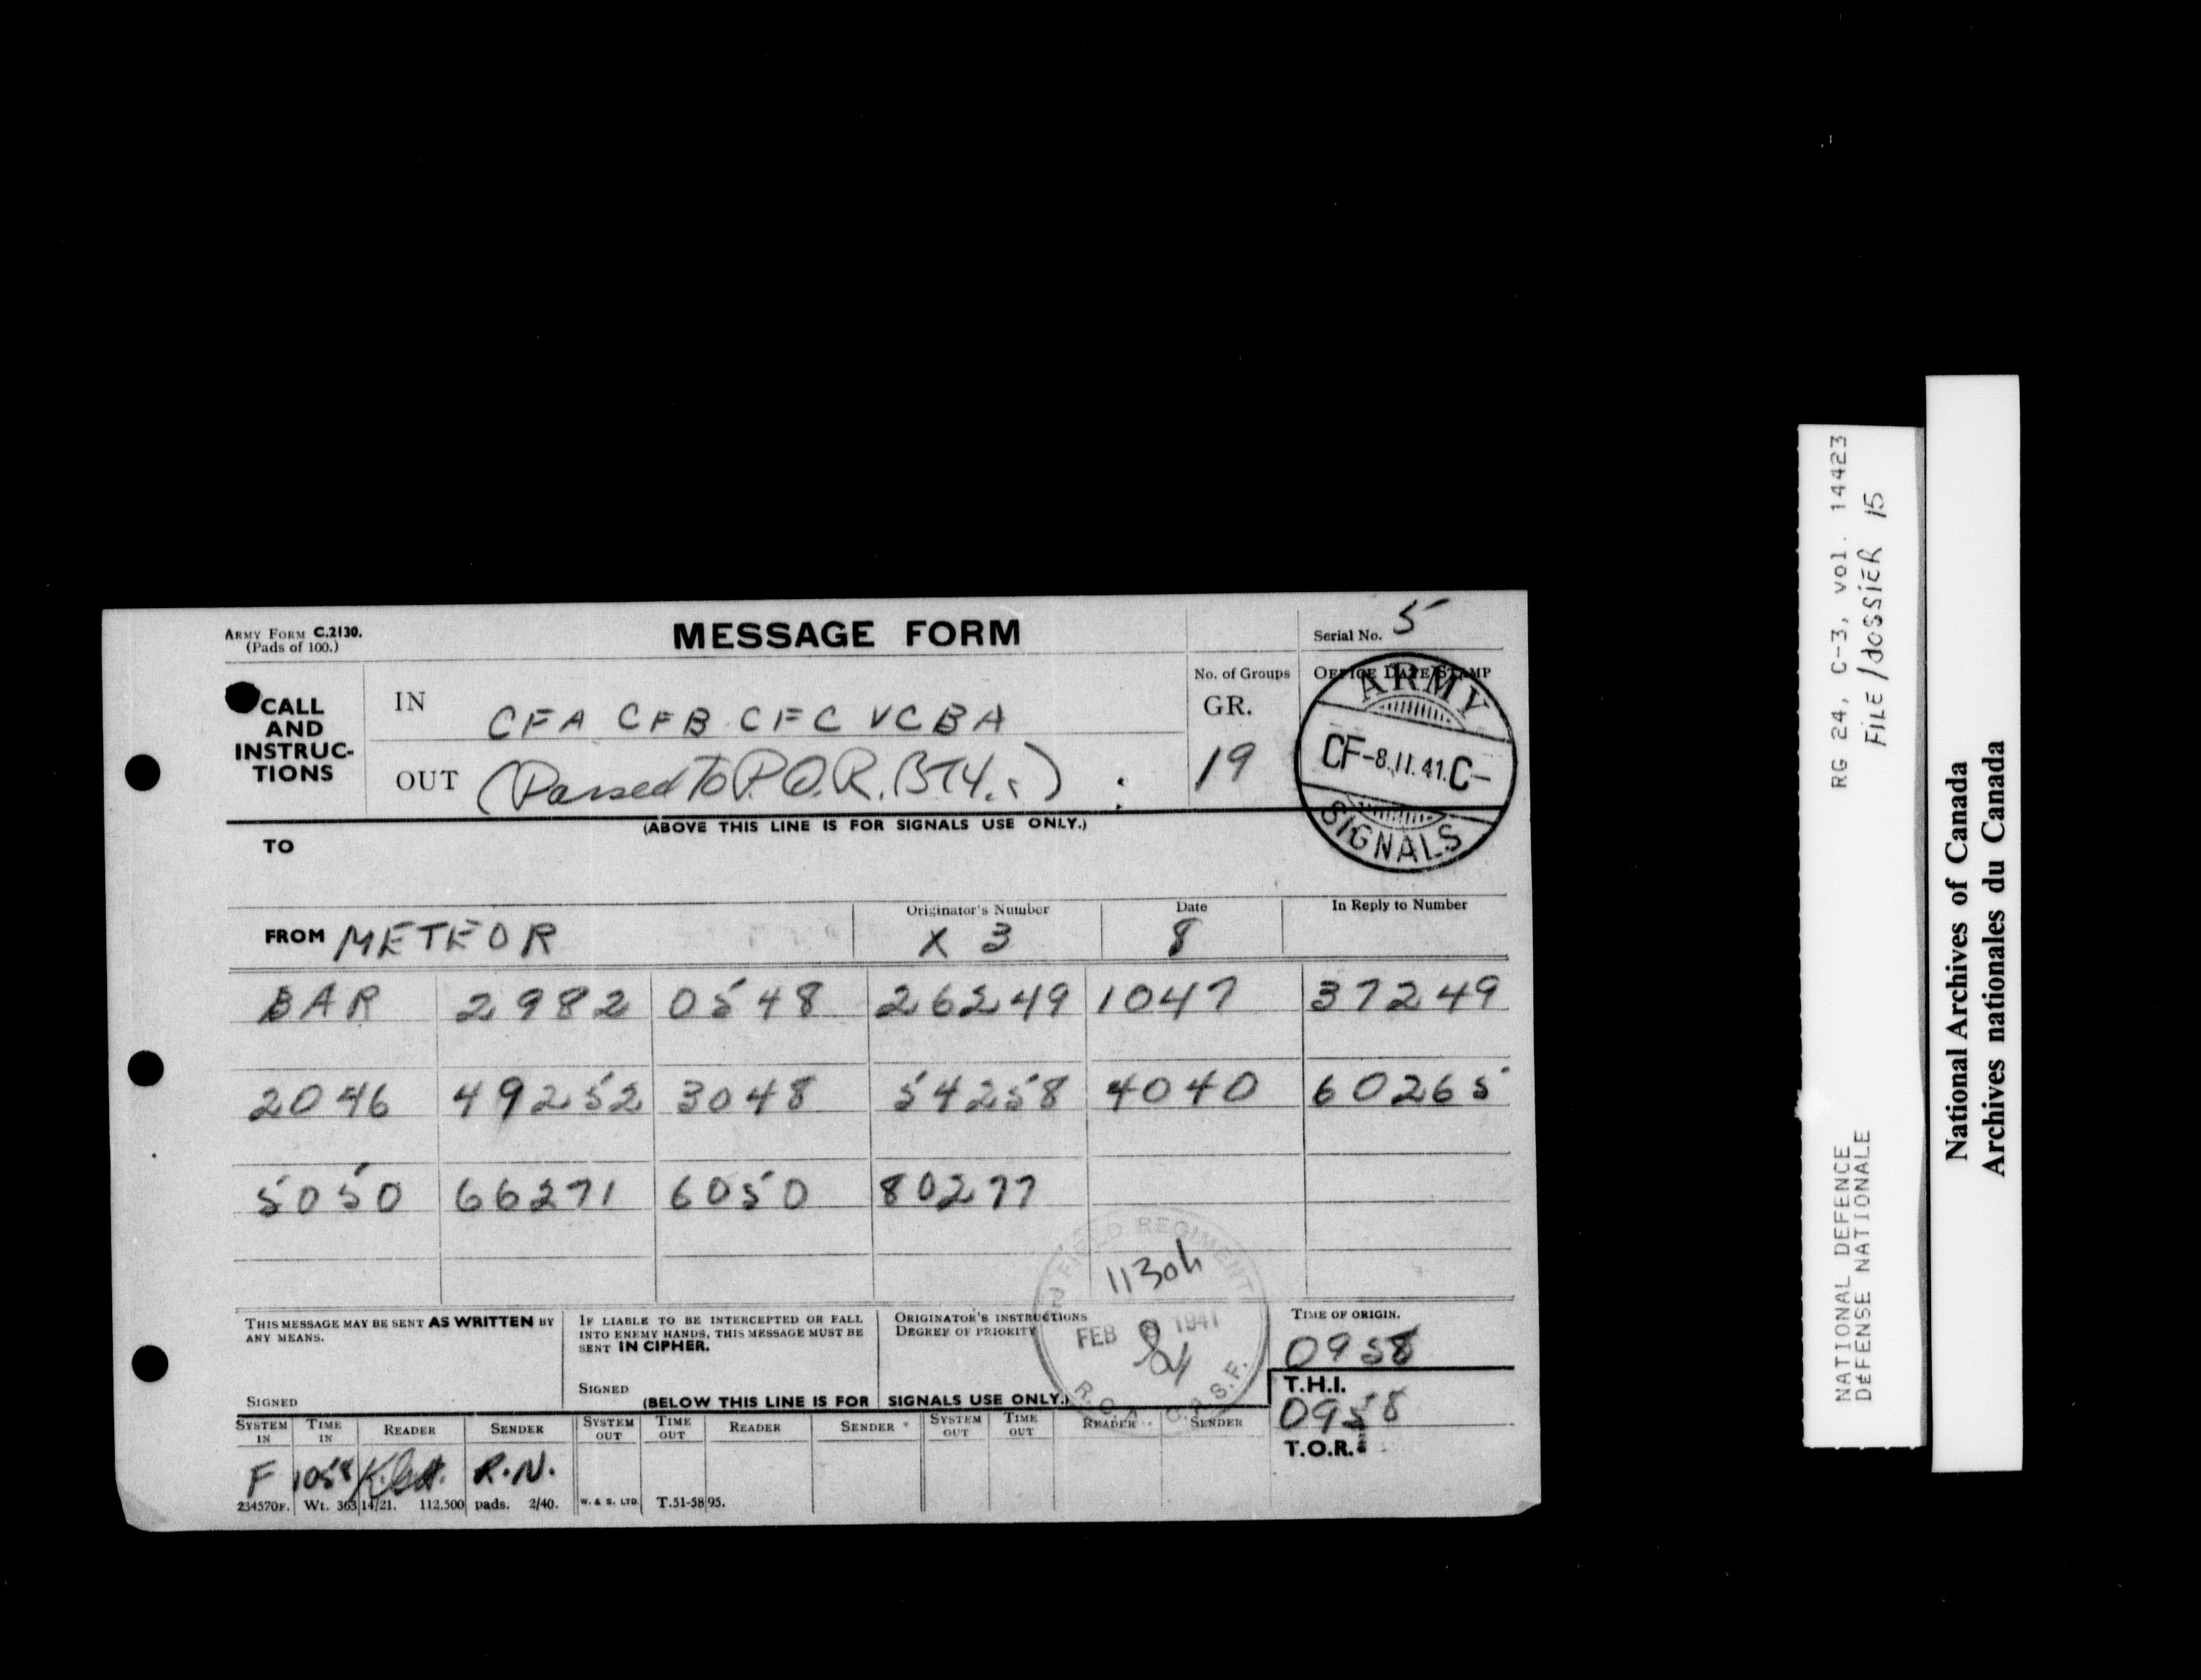 ARMY FORM C.2130.
(Pads of 100.)
MESSAGE FORM
Serial No. 5
CALL AND INSTRUC-TIONS
IN CFA CFB CFC VCBA
OUT (Passed To P.O.R. BTY.s)
No. of Groups
GR.
19
OFFICE DATE STAMP
ARMY
CF-8.II.41.C-
SIGNALS
(ABOVE THIS LINE IS FOR SIGNALS USE ONLY.)
TO
FROM METEOR
Originator's Number
X 3
Date
8
In Reply to Number
BAR 2982 0548 26249 1047 37249
2046 49252 3048 54258 4040 60265
5050 66271 6050 80277
THIS MESSAGE MAY BE SENT AS WRITTEN BY
ANY MEANS.
SIGNED
IF LIABLE TO BE INTERCEPTED OR FALL
INTO ENEMY HANDS, THIS MESSAGE MUST BE
SENT IN CIPHER.
SIGNED
ORIGINATOR'S INSTRUCTIONS
DEGREE OF PRIORITY
FIELD REGIMENT
1130h
FEB 1941
R.C.A., C.A.S.F.
TIME OF ORIGIN.
0958
T.H.I.
0958
T.O.R.
(BELOW THIS LINE IS FOR SIGNALS USE ONLY.)
SYSTEM IN TIME IN READER SENDER SYSTEM OUT TIME OUT READER SENDER SYSTEM OUT TIME OUT READER SENDER
F 1058 R.N.
234570F. Wt. 36314/21. 112,500 pads. 2/40. W. & S. LTD. T.51-5895.
RG 24, C-3, vol. 14423
FILE/dossier 15
NATIONAL DEFENCE
DÉFENSE NATIONALE
National Archives of Canada
Archives nationales du Canada